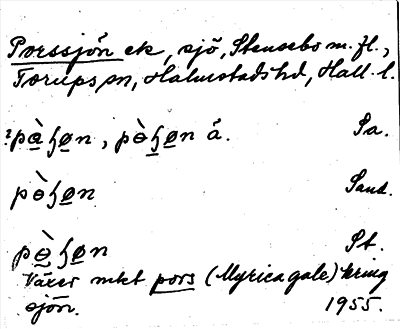 Porssjön ek, sjö, Stensebo m. fl.,
Torups sn, Halmstads hd, Hall. l.
pɵ̀ɧøn, pɵ̀ɧøn å. Sa.
pɵ̀ɧøn Sand.
pɵ̀ɧøn St.
Växer mkt pors (Myrica gale) kring
sjön. 1955.